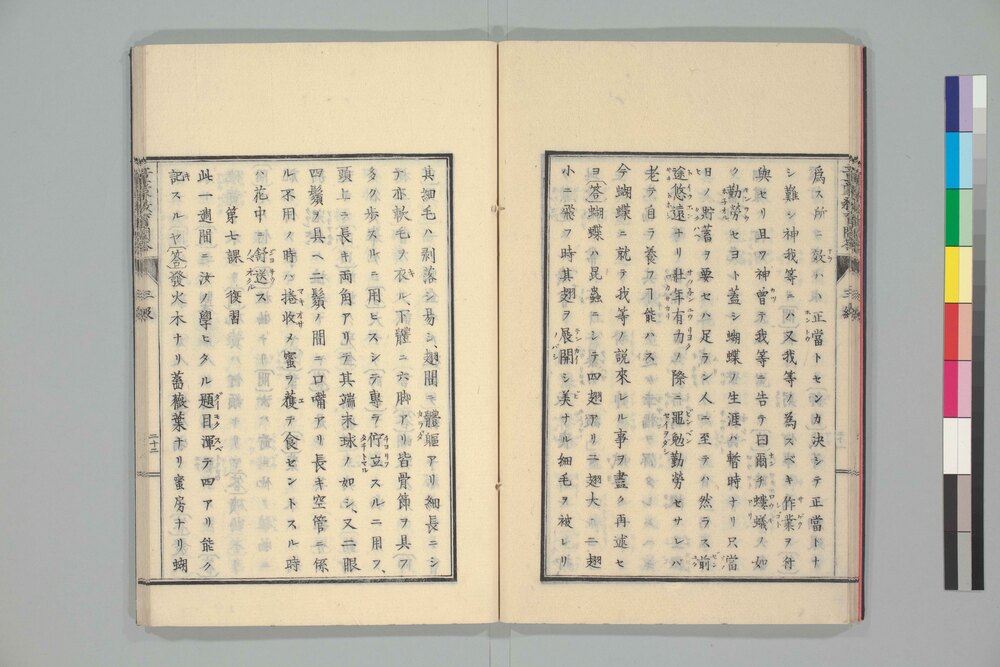 爲ス所ニ效ハヾ正當トセンカ決シテ正當トナ
シ難シ神我等ニハ又我等ノ為スベキ作業ヲ付
與セリ且ツ神曾テ我等ニ告テ曰爾チ螻蟻ノ如
ク勤勞セヨト蓋シ蝴蝶ノ生涯ハ暫時ナリ只當
日ノ貯蓄ヲ要セハ足ラン人ニ至テハ然ラス前
途悠遠ナリ壯年有力ノ際ニ黽勉勤勞セサレハ
老テ自ラ養フヿ能ハス
今蝴蝶ニ就テ我等ノ説來レル事ヲ盡ク再述セ
ヨ答蝴蝶ハ昆蟲ニシテ四翅アリ二翅大ニ二翅
小ニ飛フ時其翅ヲ展開シ美ナル細毛ヲ被レリ
其細毛ハ剥落シ易シ、翅間ニ體軀アリ細長ニシ
テ亦軟毛ノ衣ル、下體ニ六脚アリ皆骨節ヲ具フ
多ク歩スルニ用ヒスシテ專ラ佇立スルニ用フ、
頭上ニ長キ両角アリテ其端末球ノ如シ、又二眼
四鬚ヲ具ヘ二鬚ノ間ニ口嘴アリ長キ空管ニ係
ル不用ノ時ハ捲收メ蜜ヲ獲テ食セントスル時
ハ花中ニ舒送ス
第七課 復習
此一週間ニ汝ノ學ヒタル題目渾テ四アリ能ク
記スルヤ答發火木ナリ薔薇葉ナリ蜜房ナリ蝴
三級
二十二